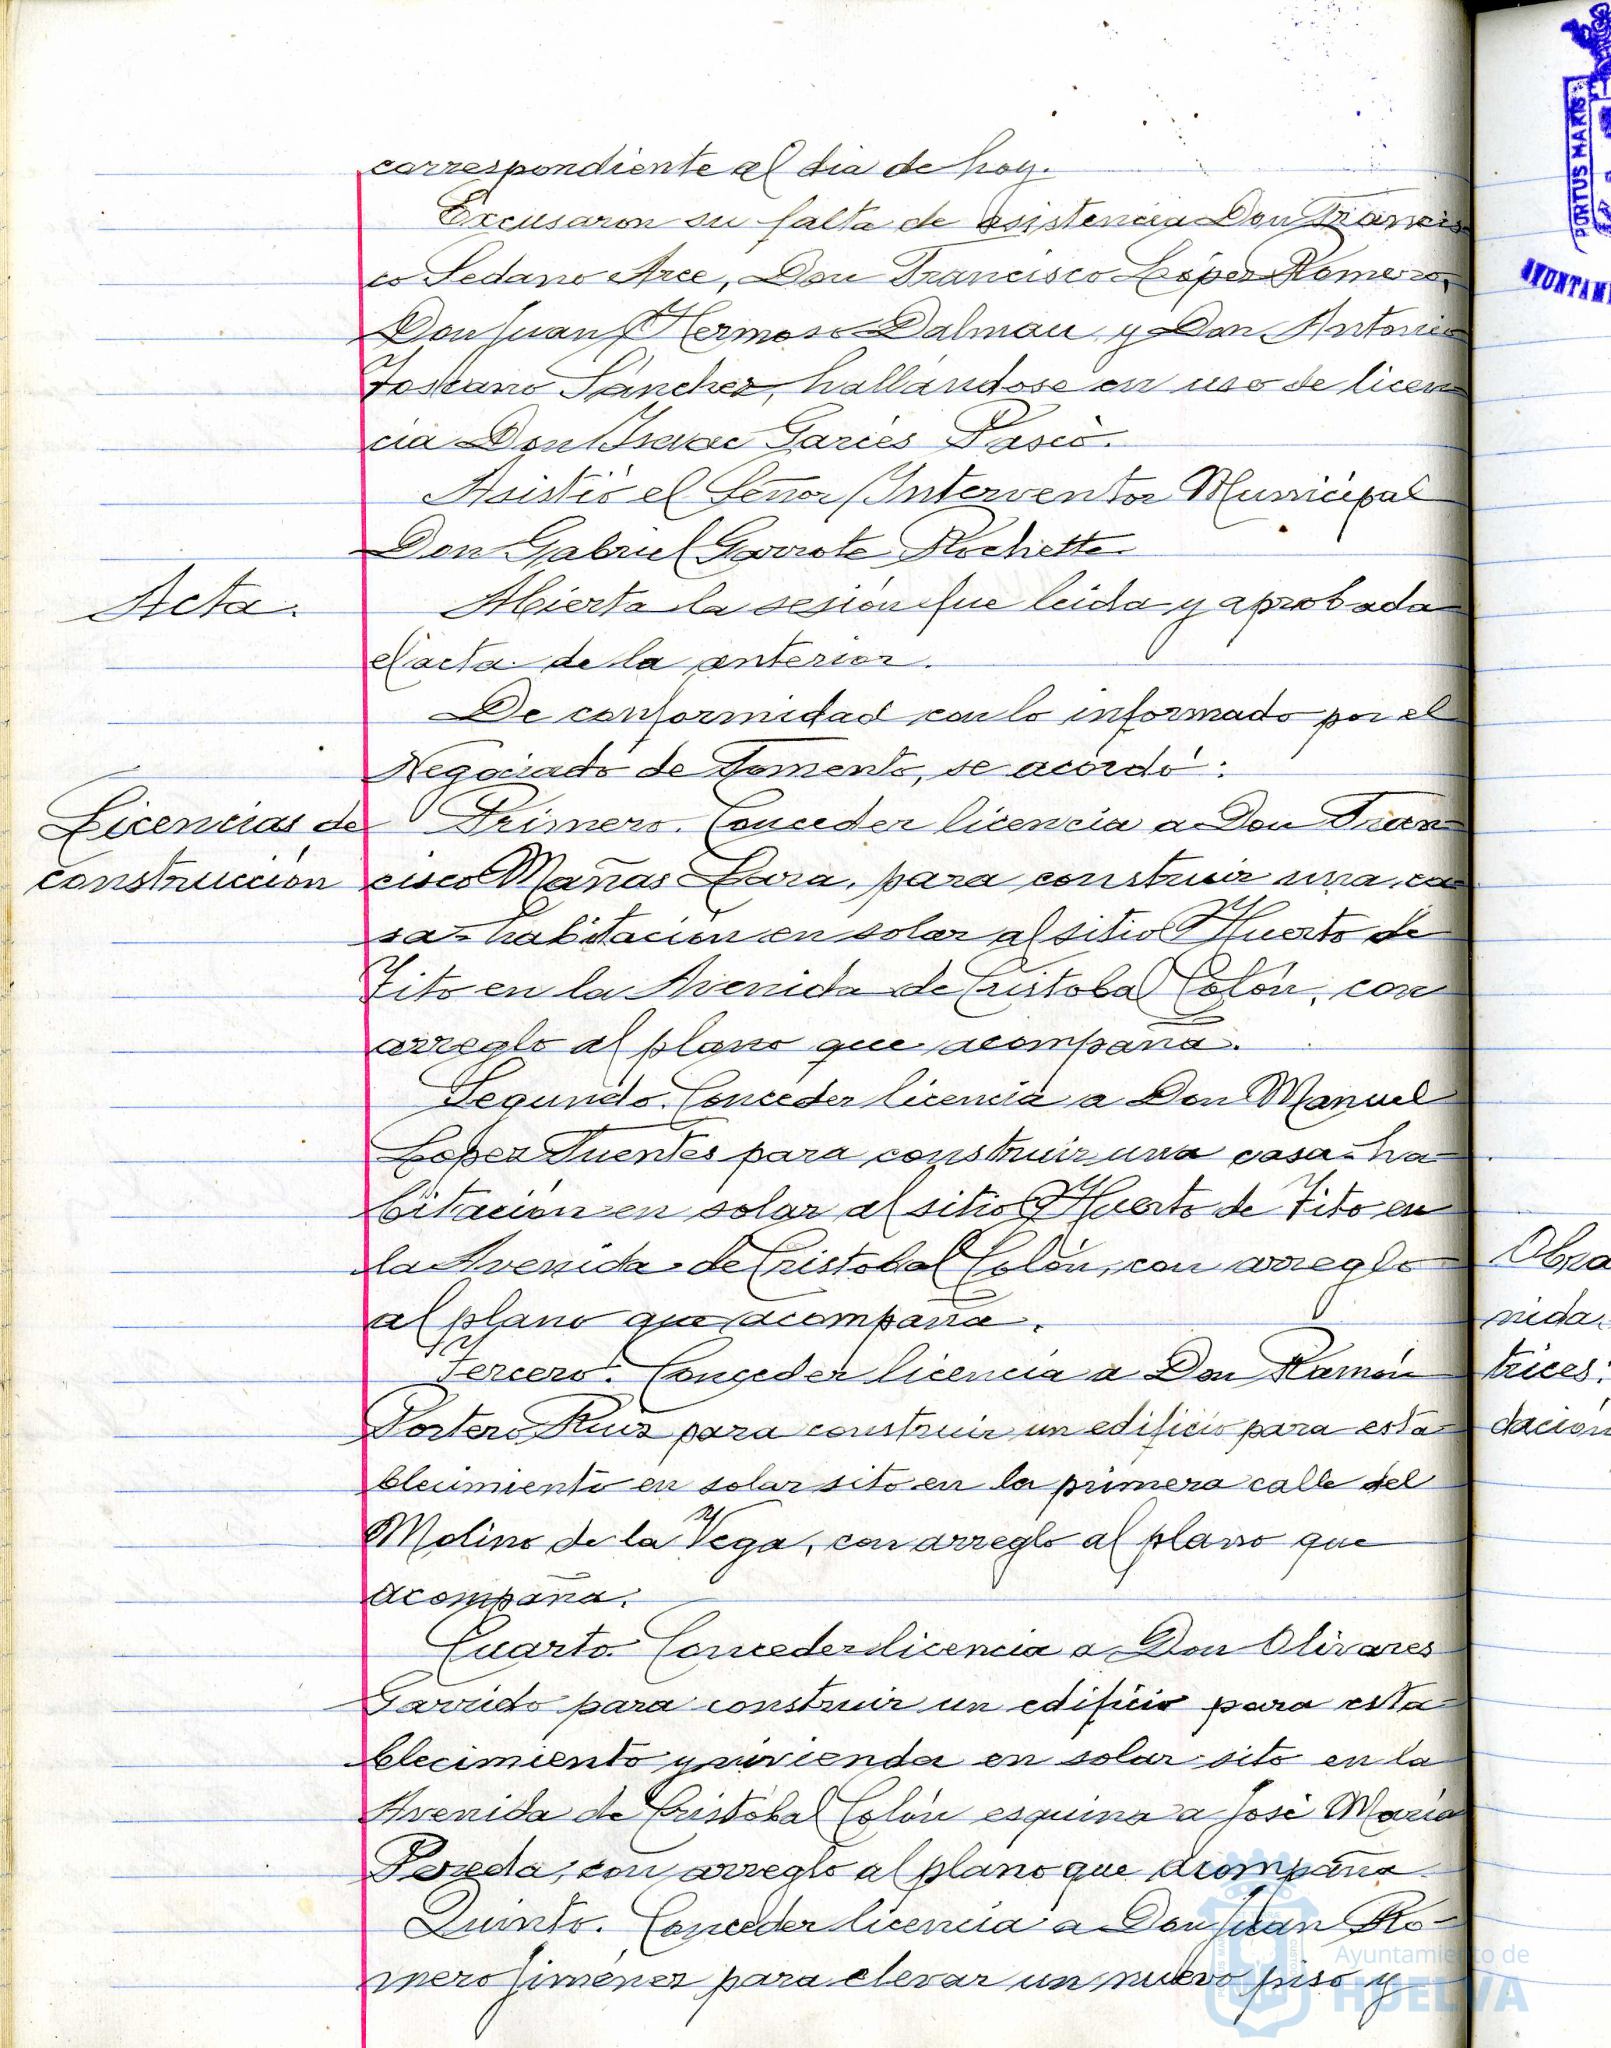 correspondiente al dia de hoy.
Excusaron su falta de asistencia Don Francis
co Sedano Arce, Don Francisco López Romero,
Don Juan Hermoso Dalmau y Don Antonio
Toscano Sánchez, hallándose en uso de licen
cia Don Isaac Garcés Pascó.
Asistió el Señor Interventor Municipal
Don Gabriel Garrote Rochette
Acta. Abierta la sesión fue leida y aprobada
el acta de la anterior.
De conformidad con lo informado por el
Negociado de Fomento, se acordó:
Licencias de Primero. Conceder licencia a Don Fran
construcción cisco Mañas Lara, para construir una ca
sa-habitación en solar al sitio Huerto de
Tito en la Avenida de Cristobal Colón, con
arreglo al plano que acompaña.
Segundo. Conceder licencia a Don Manuel
López Fuentes para construir una casa-ha
bitación en solar al sitio Huerto de Tito en
la Avenida de Cristobal Colón, con arreglo
al plano que acompaña.
Tercero. Conceder licencia a Don Ramón
Portero Ruiz para construir un edificio para esta
blecimiento en solar sito en la primera calle del
Molino de la Vega, con arreglo al plano que
acompaña.
Cuarto. Conceder licencia a Don Olivares
Garrido para construir un edificio para esta
blecimiento y vivienda en solar sito en la
Avenida de Cristóbal Colón esquina a José María
Pereda, con arreglo al plano que acompaña
Quinto. Conceder licencia a Don Juan Ro-
mero Jiménez para elevar un nuevo piso y
Obra
nida
trices:
dación
PORTUS MARIS
AYUNTAMI
Ayuntamiento de
HUELVA